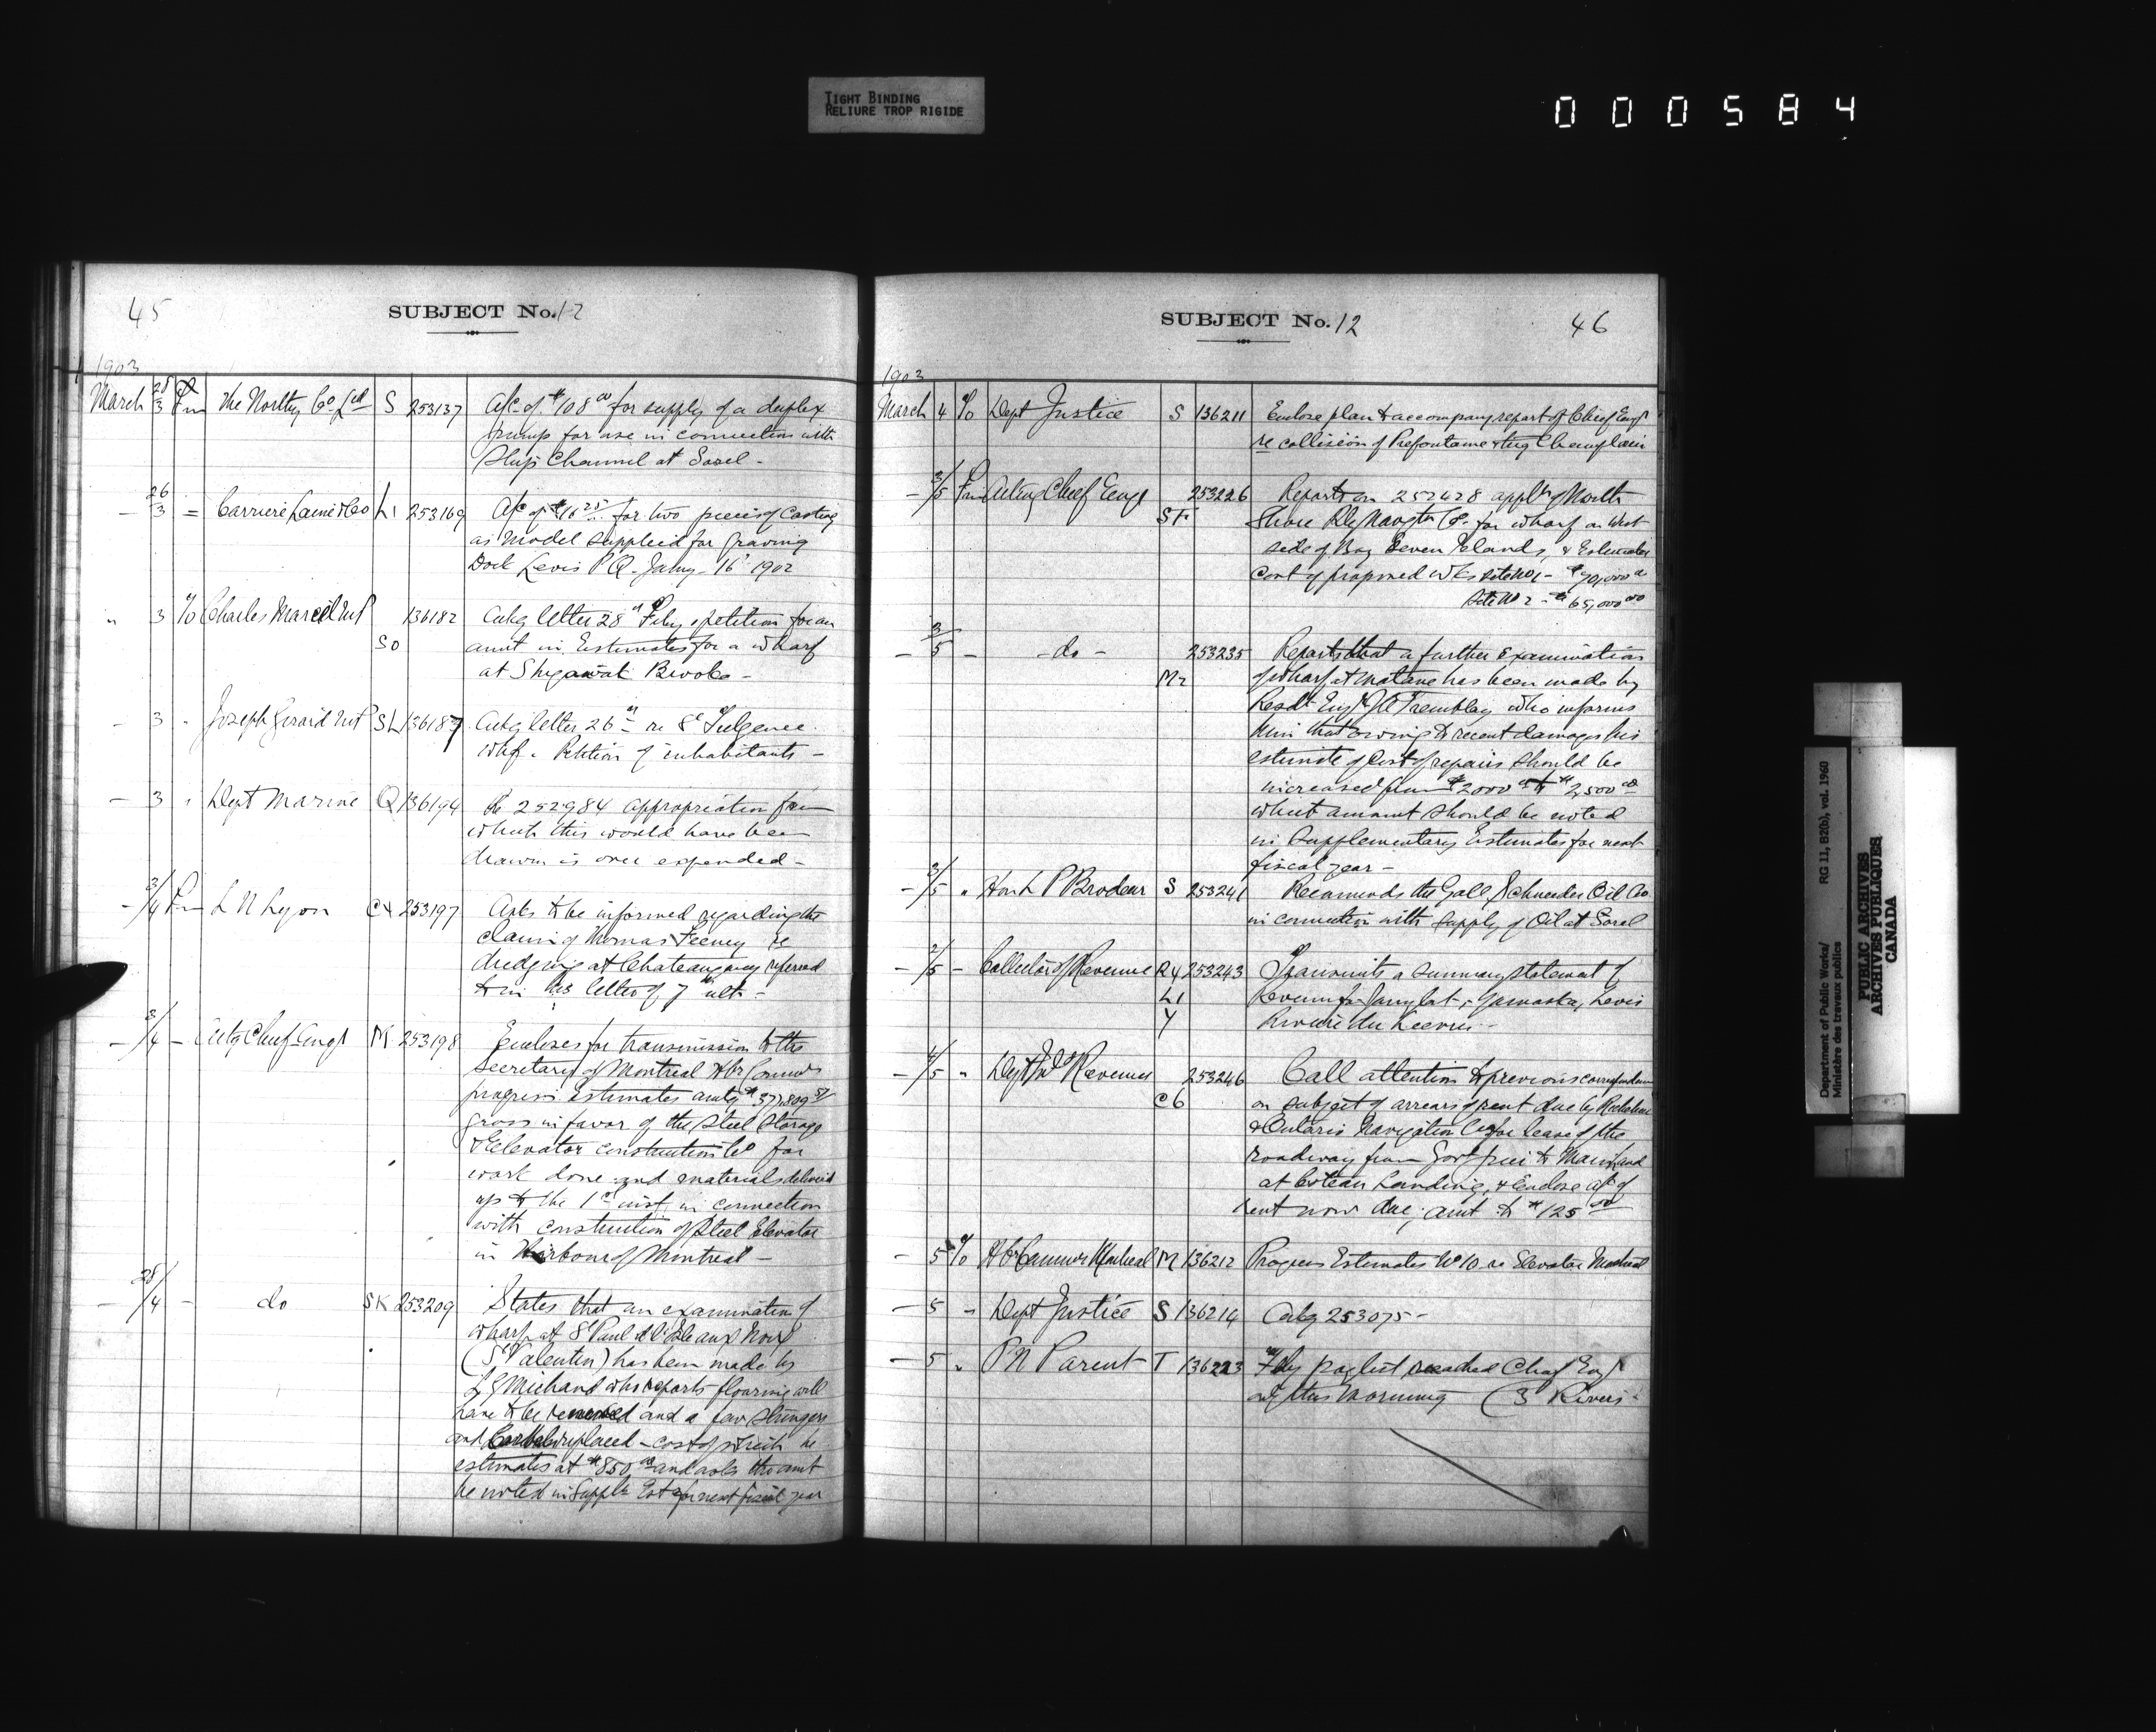 TIGHT BINDING
RELIURE TROP RIGIDE
000584
45
SUBJECT No. 12
1903
March 28/3 Fm The Northey Co. Ltd S 253137 A/c of $108.00 for supply of a duplex
pump for use in connection with
Ship Channel at Sorel -
- 26/3 = Carrier Lainé & Co L1 253169 A/c of $16.25 for two pieces of Casting
as Model supplied for Graving
Dock Levis P.Q. Jany 16 1902
" 3 % Charles Marcil MP 136182 Ackg letter 28th Feby & petition for an
SO amt in Estimates for a wharf
at Shigawat Brooks -
- 3 " Joseph Girard MP SL 136187 Ackg letter 26th re St Fulgence
whf. Petition of inhabitants -
- 3 " Dept Marine Q 136194 Re 252984 appropriation from
which this would have been
drawn is over expended -
- 3/4 Fm L N Lyon C4 253197 Asks to be informed regarding the
claim of Thomas Feeney re
dredging at Chateauguay referred
to in his letter of 7th ulto -
- 3/4 - Actg Chief Engr M 253198 Encloses for transmission to the
Secretary of Montreal Hbr Comrs
progress estimates amtg
gross in favor of the Steel Storage
& Elevator construction Co for
work done and materials delivered
up to the 1st inst. in connection
with construction of Steel Elevator
in Harbour of Montreal -
- 28/4 - do SK 253209 States that an examination of
wharf at St Paul de l'Isle aux Noix
(St Valentin) has been made by
L G Michaud who reports flooring will
have to be renewed and a few stringers
and replaced - cost of which he
estimates at $850.00 and asks the amt
be noted in Supple Est for next fiscal year
SUBJECT No. 12
46
1903
March 4 % Dept Justice S 136211 Enclose plan to accompany report of Chief Engr
re collision of Prefontaine & tug Champlain
- 3/5 Fm Acting Chief Engr 253226 Reports on 252428 applt of North
ST Shore Navgtn Co. for wharf on West
side of Bay Seven Islands, & Estimates
cost of proposed wks site No 1 - $70,000.00
Site No 2 - $65,000.00
- 3/5 - - do - 253235 Reports that a further Examination
M2 of wharf at Matane has been made by
Resdt Engr Tremblay who informs
him that owing to recent damages his
estimate of cost of repairs should be
increased from $2000.00 to $2,500.00
which amount should be noted
in Supplementary Estimates for next
fiscal year -
- 3/5 " Hon L P Brodeur S 253241 Recommends the Gall Schneider Oil Co
in connection with supply of Oil at Sorel
- 2/5 - Collector of Revenue R4 253243 Transmits a Summary statement of
L1 Revenue for Jany last, Yamaska, Levis
Y Rivière du Lievre -
- 4/5 " Dept Ind Revenue 253246 Call attention to previous correspondence
C6 on subject of arrears of rent due by Richelieu
& Ontario Navigation Co for lease of the
roadway from Govt pier to Mainland
at Coteau Landing, & Enclose a/c of
rent now due, amt to $125.00
- 5 % Hbr Commrs Montreal M 136212 Progress Estimates No 10 re Elevator Montreal
- 5 - Dept Justice S 136214 Ackg 253075 -
- 5 " P N Parent T 136223 Feby paylist reached Chief Engr
this morning (3 Rivers)
Department of Public Works/ RG 11, B2(b), vol. 1960
Ministère des travaux publics
PUBLIC ARCHIVES
ARCHIVES PUBLIQUES
CANADA